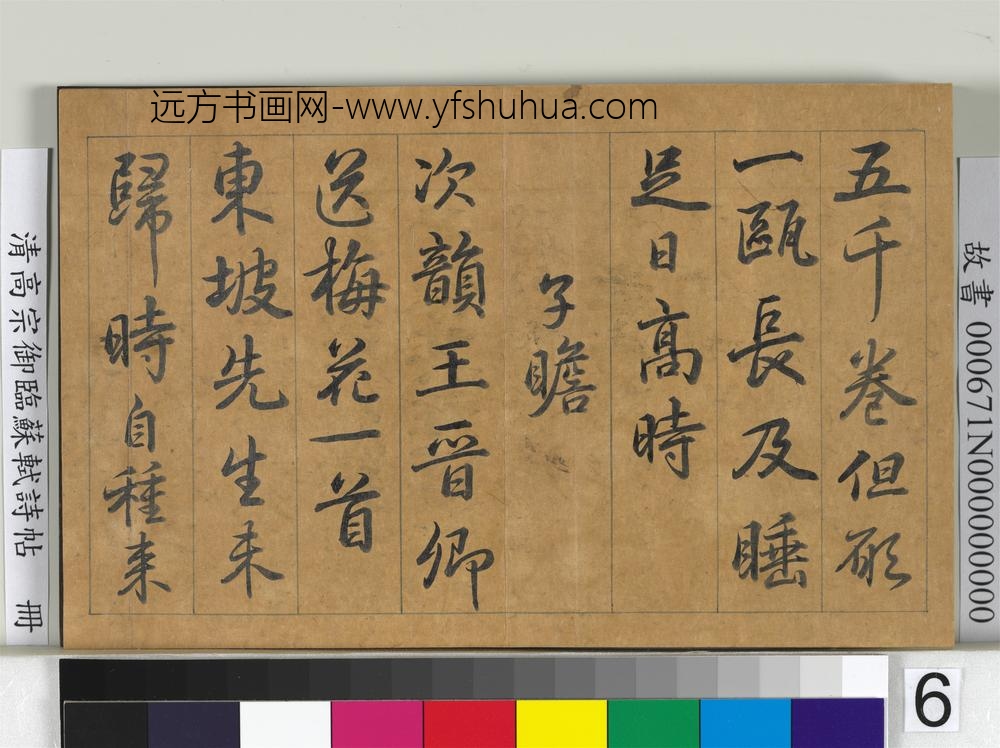 远方书画网-www.yfshuhua.com
五千卷但願
一甌長及睡
足日高時
子瞻
次韻王晉卿
送梅花一首
東坡先生未
歸時自種来
故書 000671N000000000
清高宗御臨蘇軾詩帖 冊
6